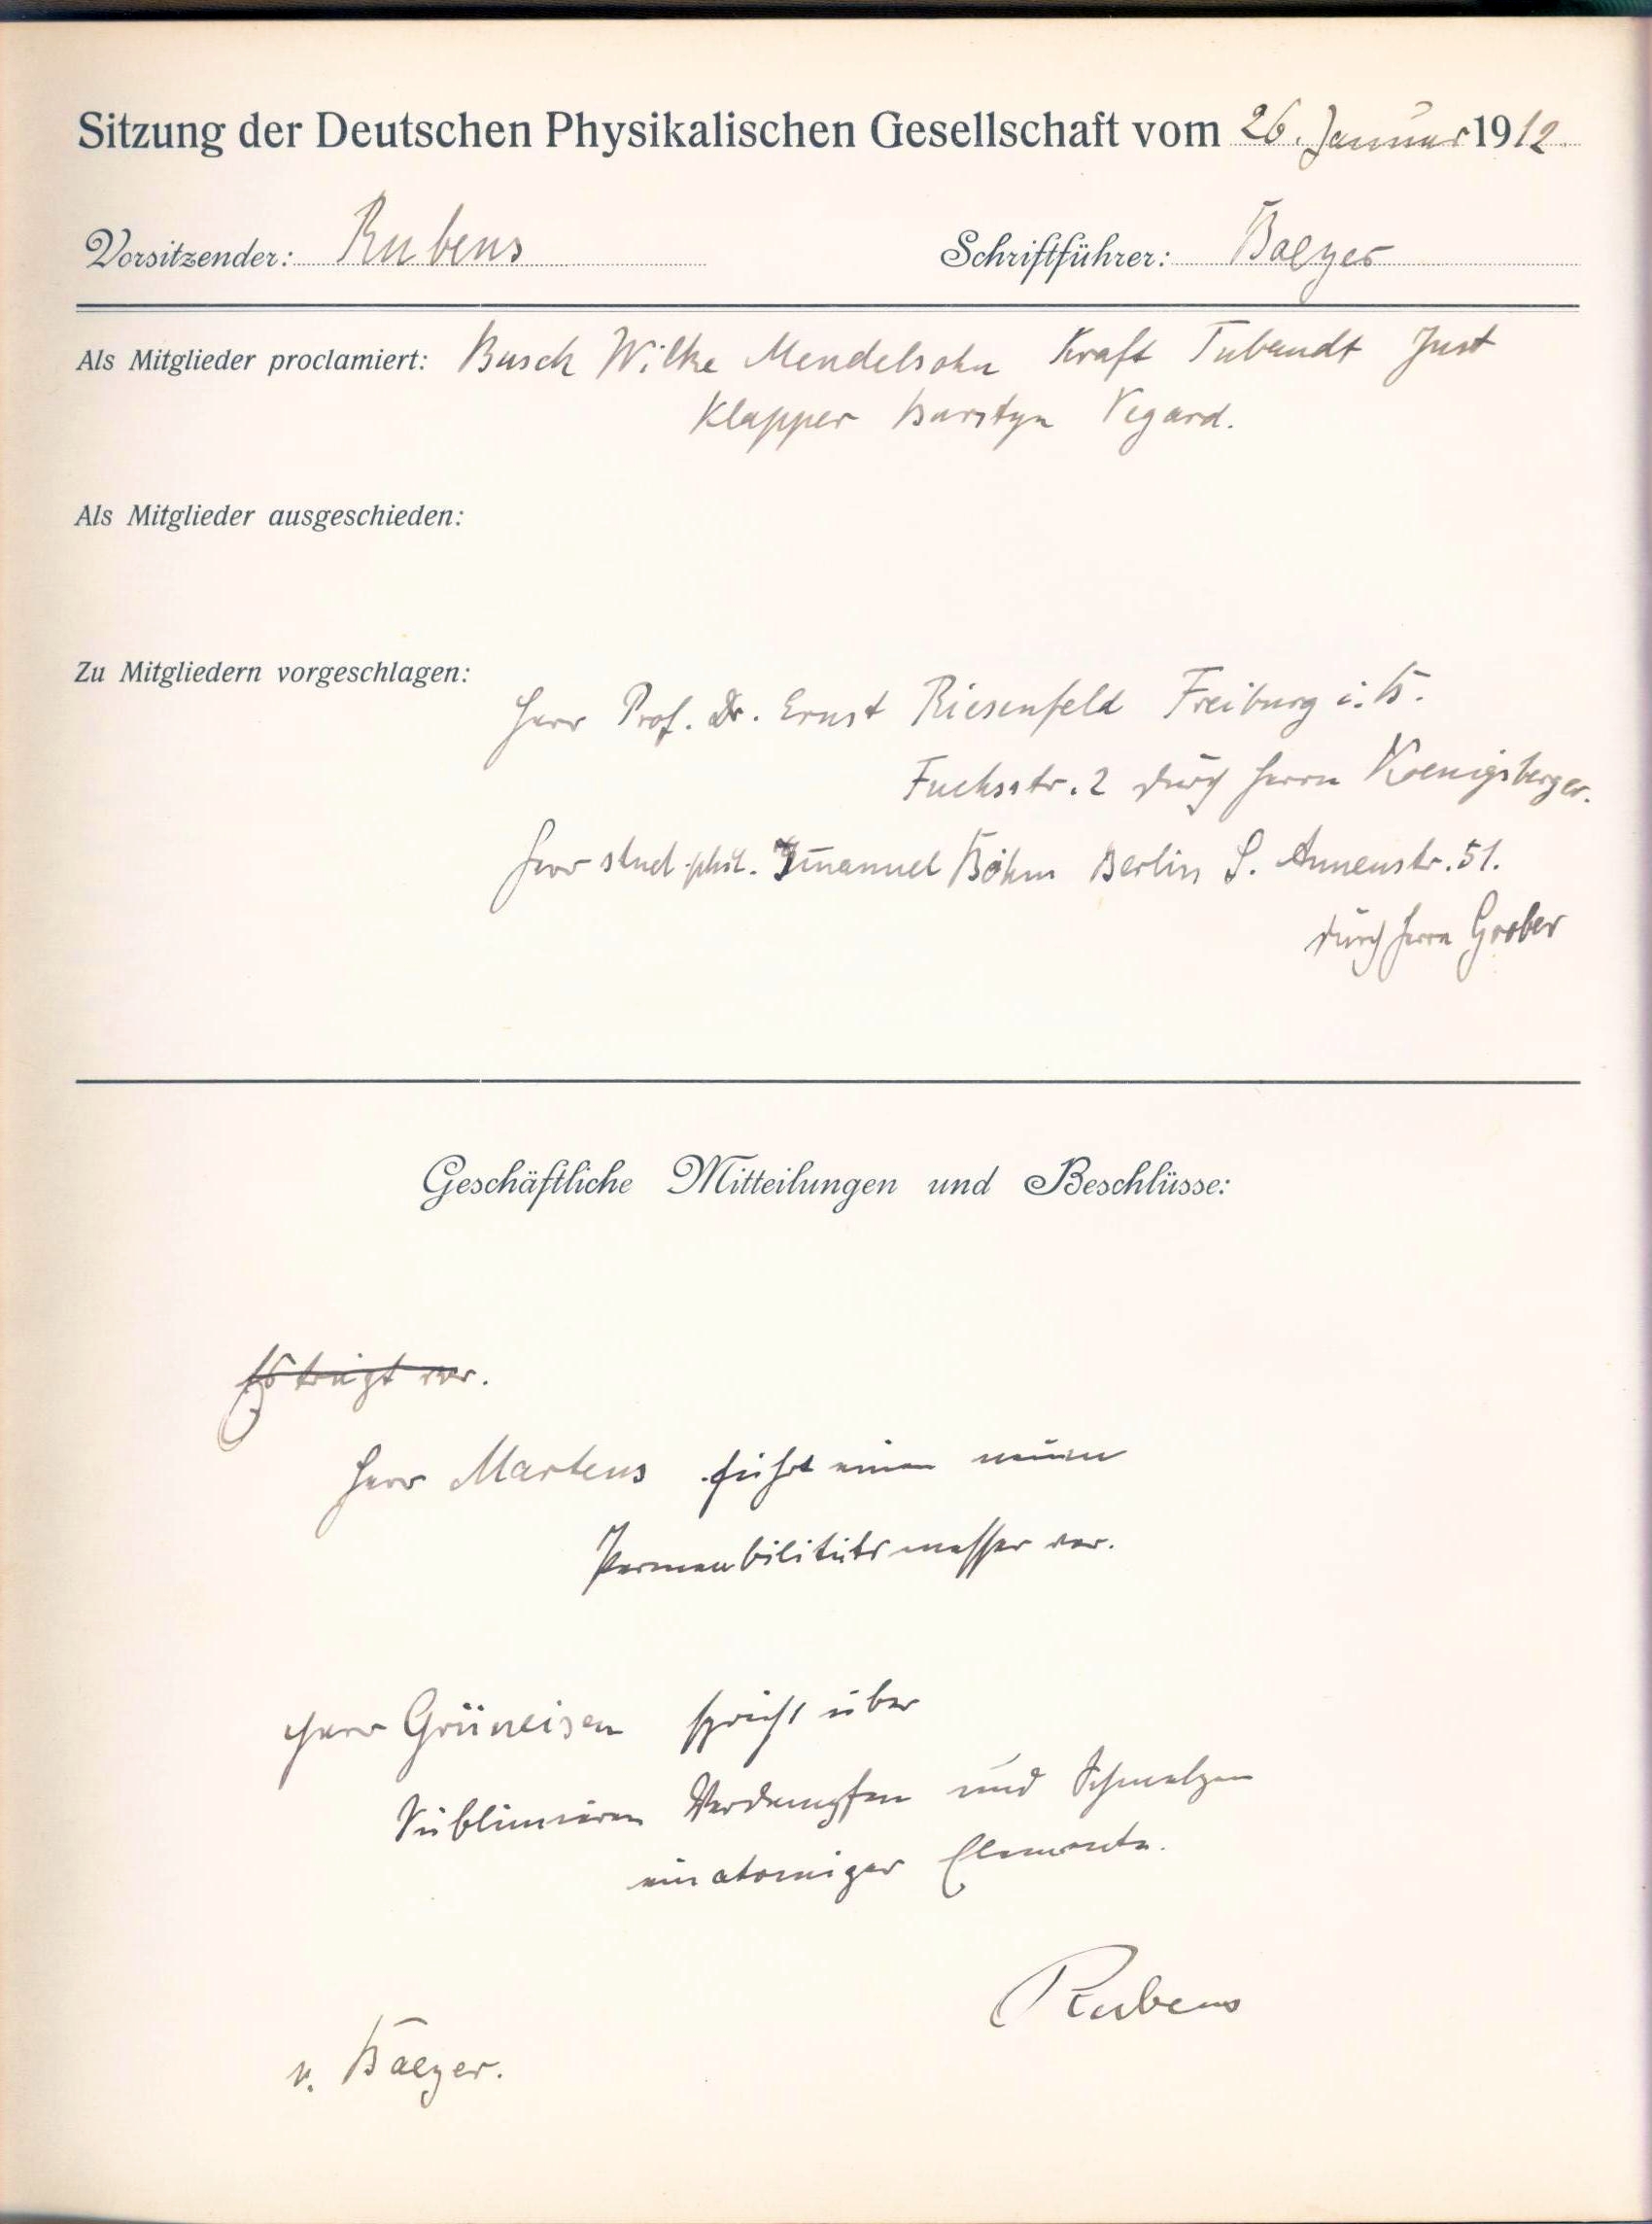 Sitzung der Deutschen Physikalischen Gesellschaft vom 26. Januar 1912.
Vorsitzender: Rubens Schriftführer: Baeyer
Als Mitglieder proclamiert: Busch Wilke Mendelsohn Kraft Tubandt Just
Klapper Burstyn Vegard.
Als Mitglieder ausgeschieden:
Zu Mitgliedern vorgeschlagen:
Herr Prof. Dr. Ernst Riesenfeld Freiburg i. B.
Fuchsstr. 2 durch Herrn Koenigsberger.
Herr stud. phil. Immanuel Böhm Berlin S. Annenstr. 51.
durch Herrn Grober
Geschäftliche Mitteilungen und Beschlüsse:
Es trägt vor.
Herr Martens führt einen neuen
Permeabilitätsmesser vor.
Herr Grüneisen spricht über
Sublimieren Verdampfen und Schmelzen
einatomiger Elemente.
Rubens
v. Baeyer.